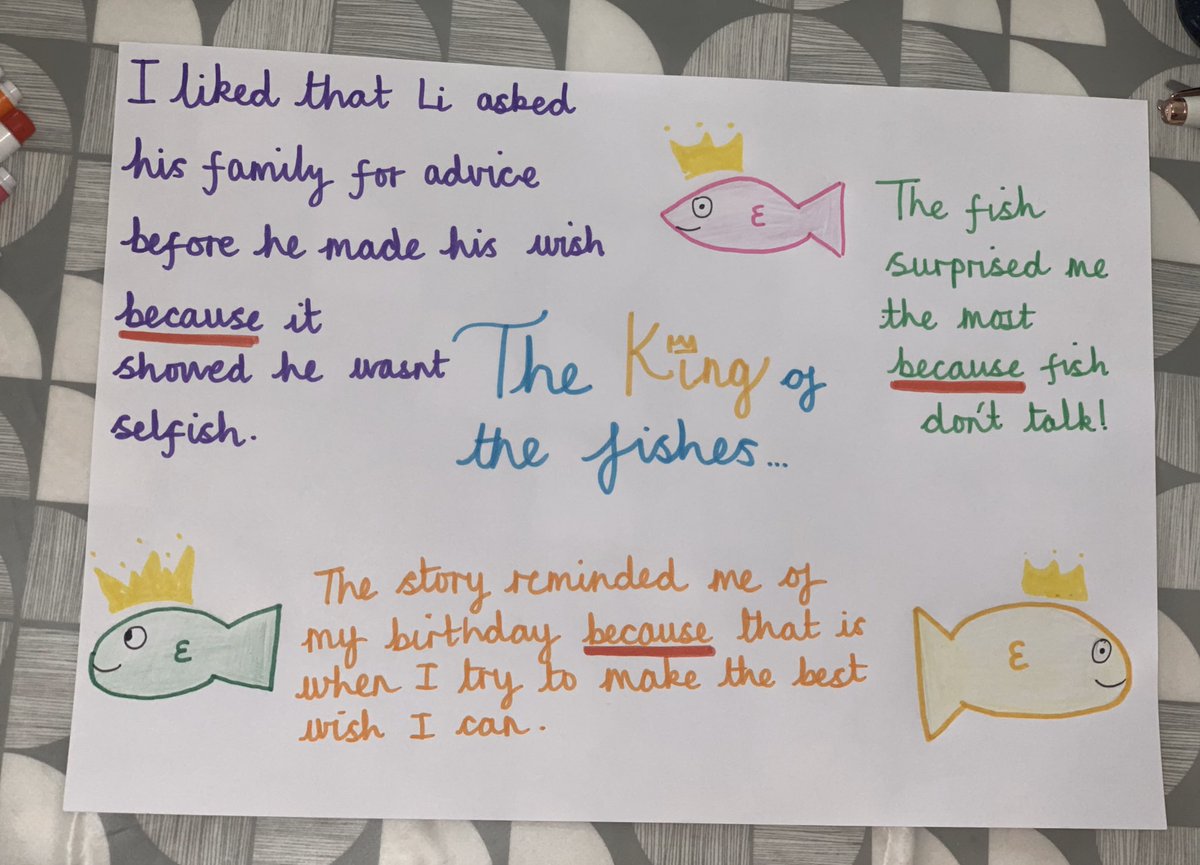 I liked that Li asked
his family for advice
before he made his wish
because it
showed he wasnt
selfish.
The King of
the fishes...
The fish
surprised me
the most
because fish
don't talk!
The story reminded me of
my birthday because that is
when I try to make the best
wish I can.